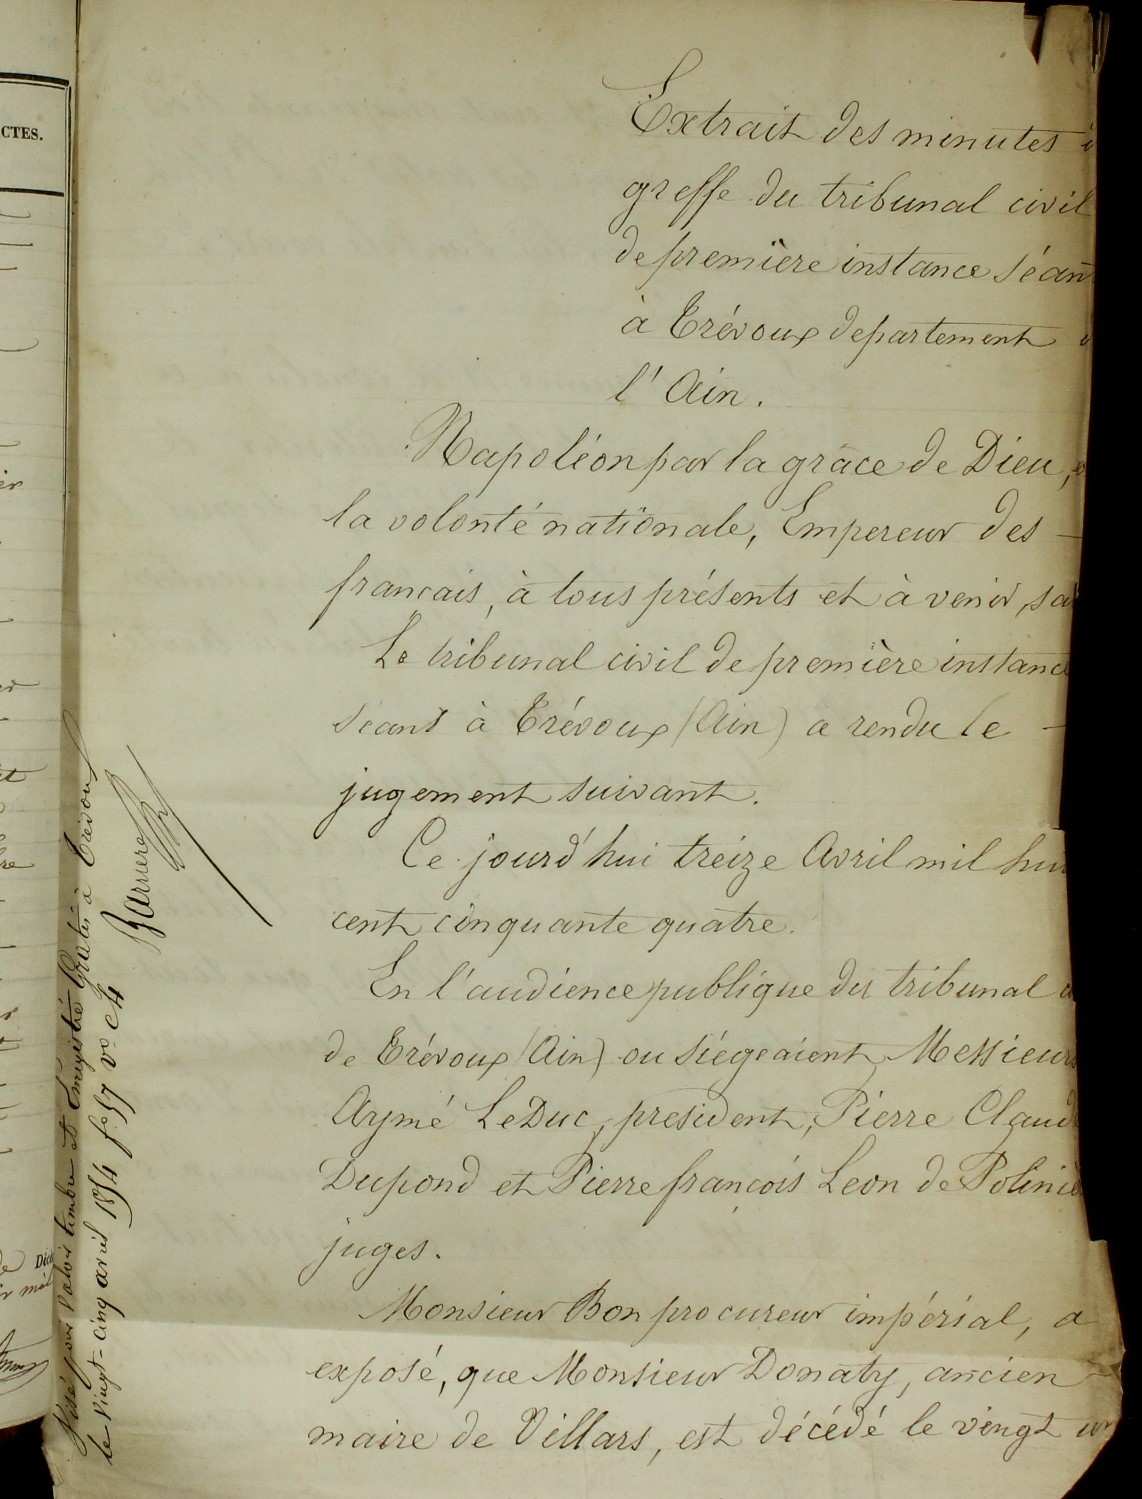 CTES.
Extrait des minutes
greffe du tribunal civil
de première instance séan
à Trévoux departement
l'Ain.
Napoléon par la grâce de Dieu,
la volonté nationale, Empereur des -
français, à tous présents et à venir, sa
Le tribunal civil de première instance
séant à Trévoux (Ain) a rendu le -
jugement suivant.
Ce jourd'hui treize Avril mil hui
cent cinquante quatre.
En l'audience publique du tribunal
de Trévoux (Ain) ou siégeaient Messieurs
Aymé LeDuc, president, Pierre Claud
Dupond et Pierre françois Leon de Poliniè
juges.
Monsieur Bon procureur impérial, a
exposé, que Monsieur Donaty, ancien
maire de Villars, est décédé le vingt un
Visé pour valoir timbre et Enregistré Gratis à Trévoux
le Vingt-cinq avril 1854 f° 57 v° c 4
Barruero